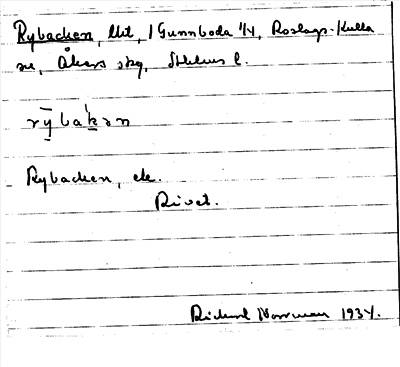 Rybacken, lht, i Gunnboda 1/4, Roslags-Kulla
sn, Åkers skg, Sthlms l.
rȳbakən
Rybacken, ek.
Rivet.
Rickard Norrman 1934.